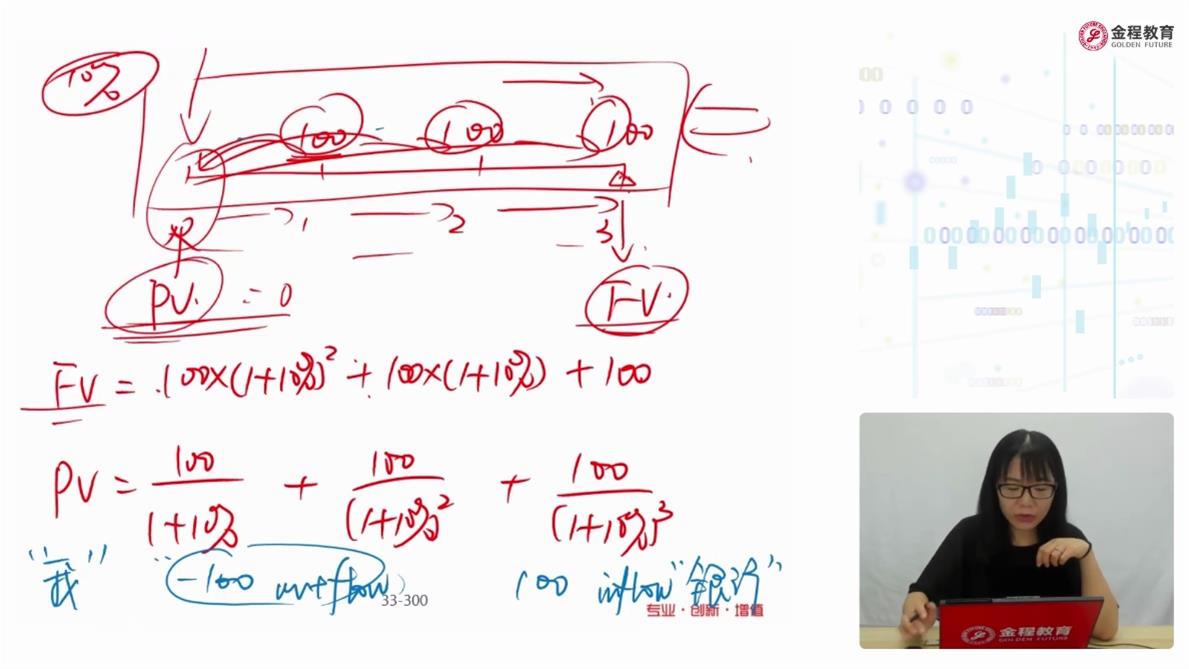 金程教育
GOLDEN FUTURE
10%
100 100 100
1 2 3
PV. = 0 FV.
FV = 100×(1+10%)² + 100×(1+10%) + 100
PV = 100/(1+10%) + 100/(1+10%)² + 100/(1+10%)³
"我" -100 outflow 100 inflow "银行"
33-300
专业·创新·增值
金程教育
GOLDEN FUTURE